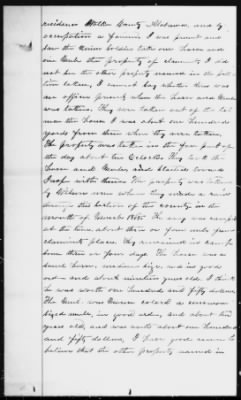 residence Walker County Alabama, and by
occupation a farmer I was present and
saw the Union Soldiers take one horse and
one mule the property of claimant I did
not see the other property named in the
taken, I cannot say whether there was
an officer present when the horse and mule
was taken. They were taken out of the lot
near the house I was about one hundred
yards from them when they were taken.
The property was taken in the fore part of
the day about ten O clock They took the
horse and mule and
with them. The property was taken
by Wilsons men when they made a raid
through this section of the country in the
month of March 1865. The army was camped
at the time about three or four miles from
claimants place. They remained in camp
some three or four days. The horse was a
horse, medium size, and in good
order and about years old I think
he was worth one hundred and fifty dollars
The mule was colored a common
sized mule, in good order, and about ten
years old, and was worth about one hundred
and fifty dollars, I have good reason to
believe that the other property named in